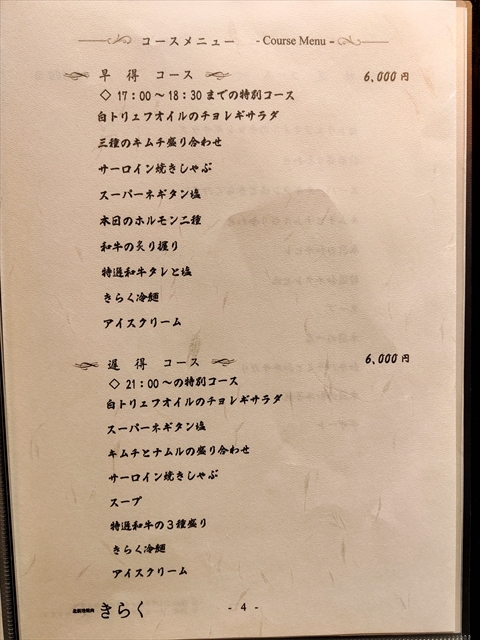 コースメニュー - Course Menu -
早得コース 6,000円
◇ 17:00～18:30までの特別コース
白トリュフオイルのチョレギサラダ
三種のキムチ盛り合わせ
サーロイン焼きしゃぶ
スーパーネギタン塩
本日のホルモン二種
和牛の炙り握り
特選和牛タレと塩
きらく冷麺
アイスクリーム
遅得コース 6,000円
◇ 21:00～の特別コース
白トリュフオイルのチョレギサラダ
スーパーネギタン塩
キムチとナムルの盛り合わせ
サーロイン焼きしゃぶ
スープ
特選和牛の3種盛り
きらく冷麺
アイスクリーム
きらく - 4 -